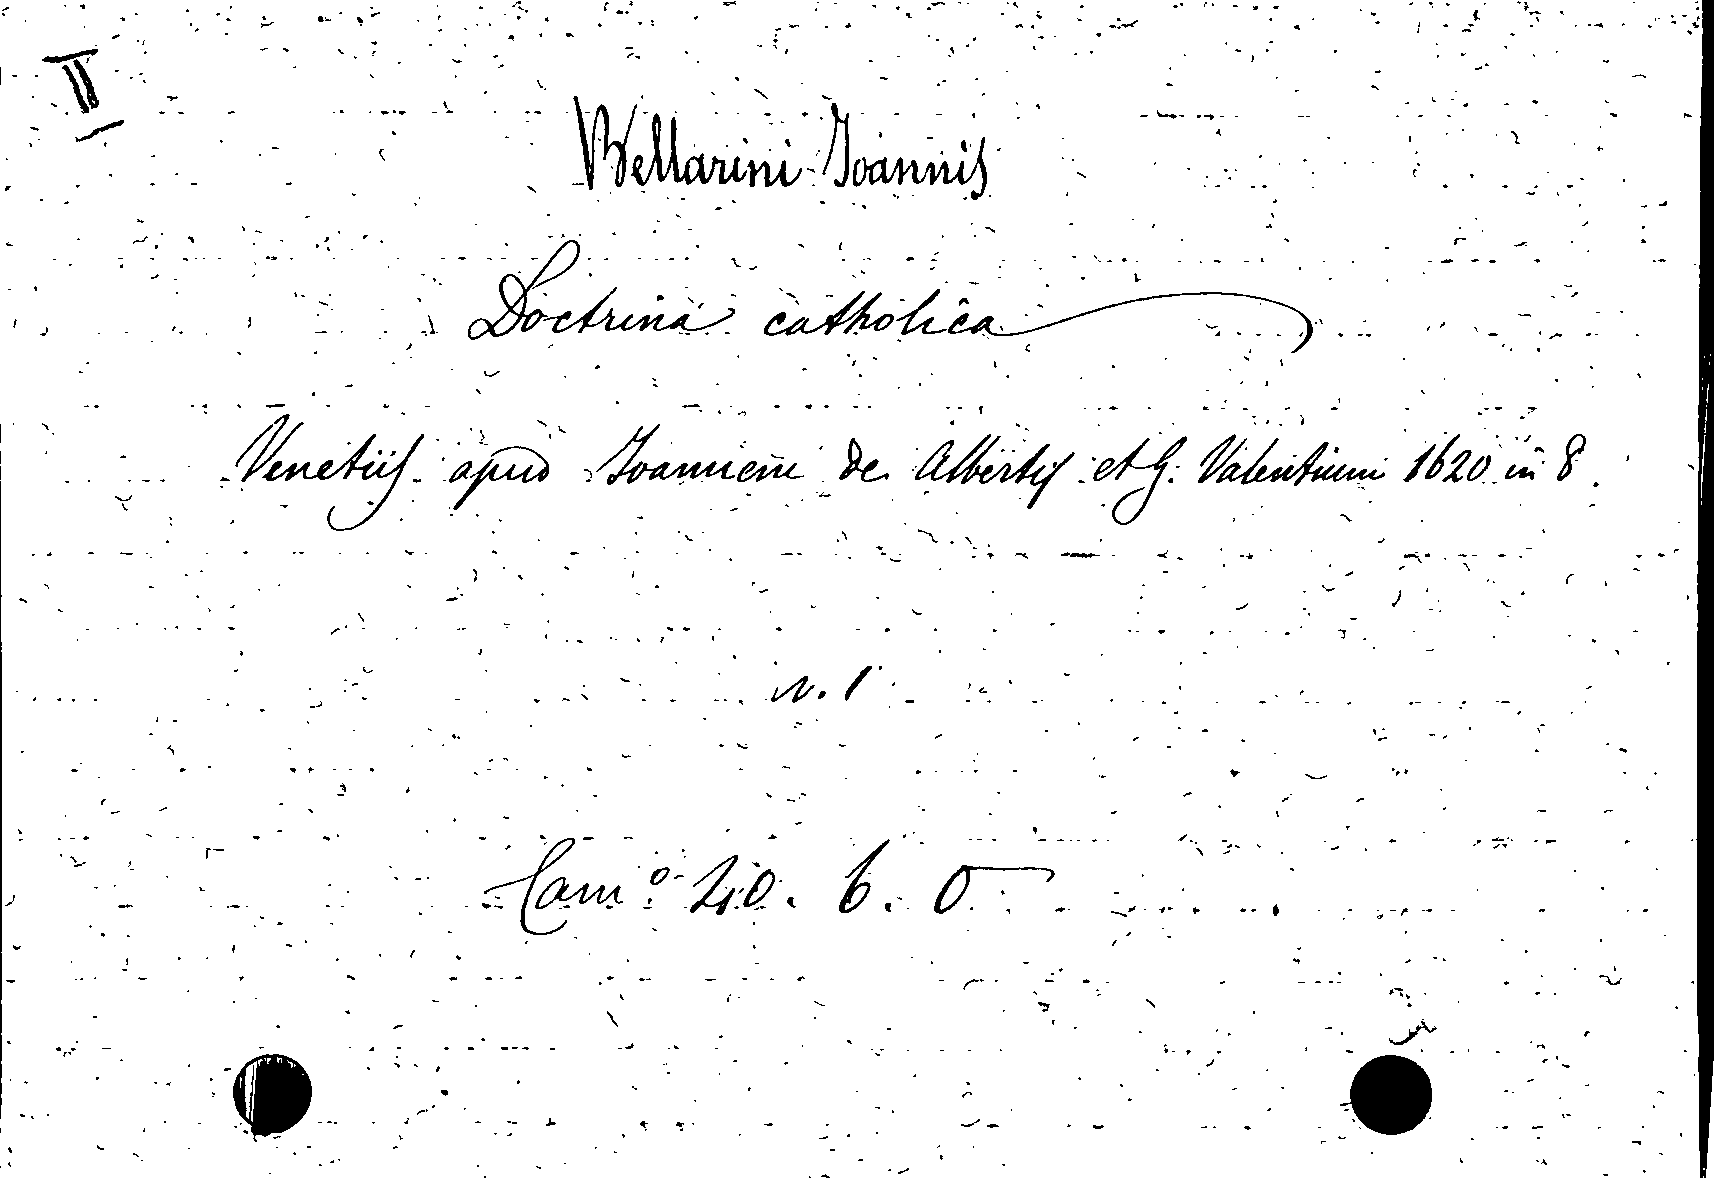 II
Bellarini Joannis
Doctrina catholica
Venetiis apud Joannem de Albertis et G. Valentinum 1620 in 8.
N. 1
Cam.º 20. 6. 0